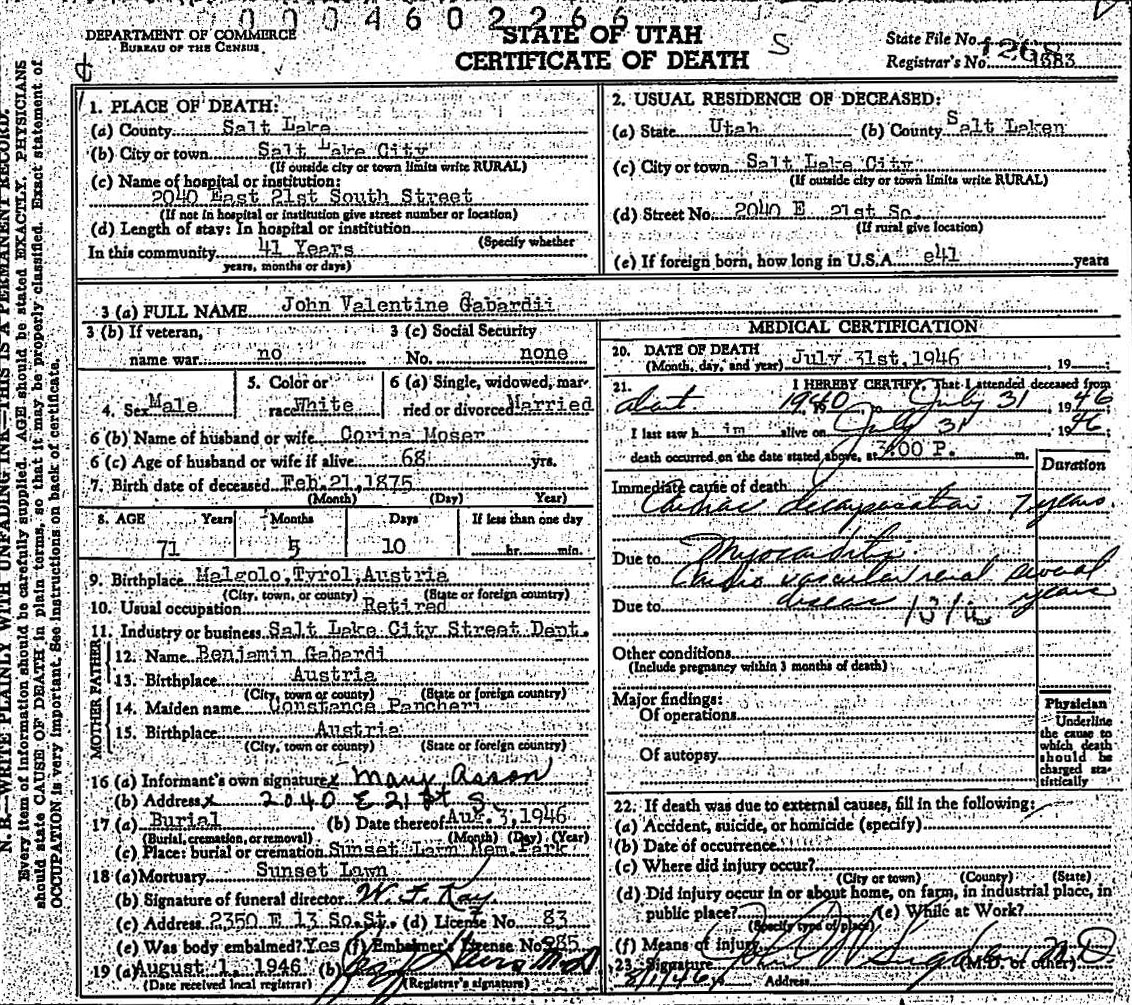 0 0 0 0 4 6 0 2 2 6 6
DEPARTMENT OF COMMERCE
BUREAU OF THE CENSUS
STATE OF UTAH
CERTIFICATE OF DEATH
S
State File No.
Registrar's No. 1268 1683
N. B.—WRITE PLAINLY WITH UNFADING INK—THIS IS A PERMANENT RECORD.
Every item of information should be carefully supplied. AGE should be stated EXACTLY. PHYSICIANS
should state CAUSE OF DEATH in plain terms, so that it may be properly classified. Exact statement of
OCCUPATION is very important. See instructions on back of certificate.
1. PLACE OF DEATH:
(a) County Salt Lake
(b) City or town Salt Lake City
(If outside city or town limits write RURAL)
(c) Name of hospital or institution:
2040 East 21st South Street
(If not in hospital or institution give street number or location)
(d) Length of stay: In hospital or institution
(Specify whether
In this community 41 Years
years, months or days)
2. USUAL RESIDENCE OF DECEASED:
(a) State Utah (b) County Salt Laken
(c) City or town Salt Lake City
(If outside city or town limits write RURAL)
(d) Street No. 2040 E 21st So.
(If rural give location)
(e) If foreign born, how long in U.S.A. e41 years
3 (a) FULL NAME John Valentine Gabardii
3 (b) If veteran, name war no
3 (c) Social Security No. none
4. Sex Male
5. Color or race White
6 (a) Single, widowed, married or divorced Married
6 (b) Name of husband or wife Corina Moser
6 (c) Age of husband or wife if alive 68 yrs.
7. Birth date of deceased Feb. 21, 1875
(Month) (Day) Year)
8. AGE Years Months Days If less than one day
71 5 10 hr. min.
9. Birthplace Malgolo, Tyrol, Austria
(City, town, or county) (State or foreign country)
10. Usual occupation Retired
11. Industry or business Salt Lake City Street Dept.
FATHER
12. Name Benjamin Gabardi
13. Birthplace Austria
(City, town or county) (State or foreign country)
MOTHER
14. Maiden name Constance Pancheri
15. Birthplace Austria
(City, town or county) (State or foreign country)
16 (a) Informant's own signature x Mary
(b) Address x 2040 E 21st S.
17 (a) Burial (b) Date thereof Aug. 3, 1946
(Burial, cremation, or removal) (Month) (Day) (Year)
(c) Place: burial or cremation Sunset Lawn Mem. Park
18 (a) Mortuary Sunset Lawn
(b) Signature of funeral director W. F. Kay
(c) Address 2350 E 13 So. St. (d) License No. 83
(e) Was body embalmed? Yes (f) Embalmer's License No 985
19 (a) August 1, 1946 (b)
(Date received local registrar) (Registrar's signature)
MEDICAL CERTIFICATION
20. DATE OF DEATH July 31st, 1946
(Month, day, and year) 19
21. I HEREBY CERTIFY, That I attended deceased from
about 1940, to July 31, 1946
I last saw h im alive on July 31, 1946
death occurred on the date stated above, at 3:00 P. m.
Duration
Immediate cause of death
Cardiac decompensation 7 years
Due to Myocarditis
Cardio vascular renal several
Due to disease years
131a
Other conditions
(Include pregnancy within 3 months of death)
Major findings:
Of operations
Of autopsy
Physician
Underline
the cause to
which death
should be
charged sta-
tistically
22. If death was due to external causes, fill in the following:
(a) Accident, suicide, or homicide (specify)
(b) Date of occurrence
(c) Where did injury occur?
(City or town) (County) (State)
(d) Did injury occur in or about home, on farm, in industrial place, in
public place? (e) While at Work?
(Specify type of place)
(f) Means of injury
23. Signature John M.D. (M.D. or other)
8/1/46 Address